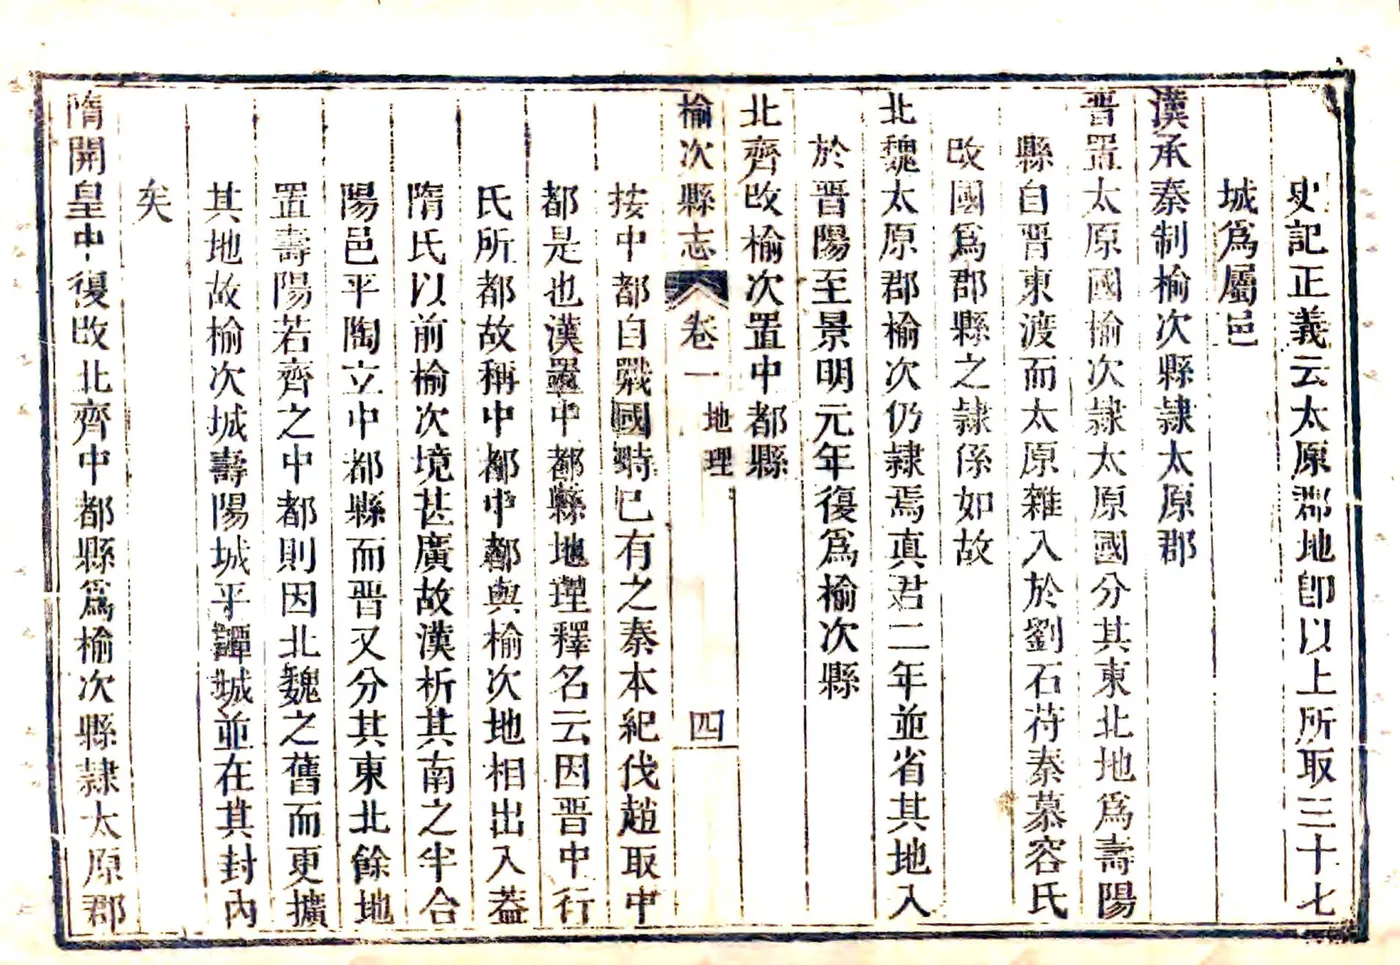 史記正義云太原郡地卽以上所取三十七
城爲屬邑
漢承秦制榆次縣隷太原郡
晋置太原國榆次隷太原國分其東北地爲壽陽
縣自晋東渡而太原雜入於劉石苻秦慕容氏
改國爲郡縣之隷係如故
北魏太原郡榆次仍隷焉真君二年並省其地入
於晋陽至景明元年復爲榆次縣
北齊改榆次置中都縣
榆次縣志 卷一 地理 四
按中都自戰國時已有之秦本紀伐趙取中
都是也漢置中都縣地理釋名云因晋中行
氏所都故稱中都中都與榆次地相出入葢
隋氏以前榆次境甚廣故漢析其南之半合
陽邑平陶立中都縣而晋又分其東北餘地
置壽陽若齊之中都則因北魏之舊而更擴
其地故榆次城壽陽城平譚城並在其封內
矣
隋開皇中復改北齊中都縣爲榆次縣隷太原郡